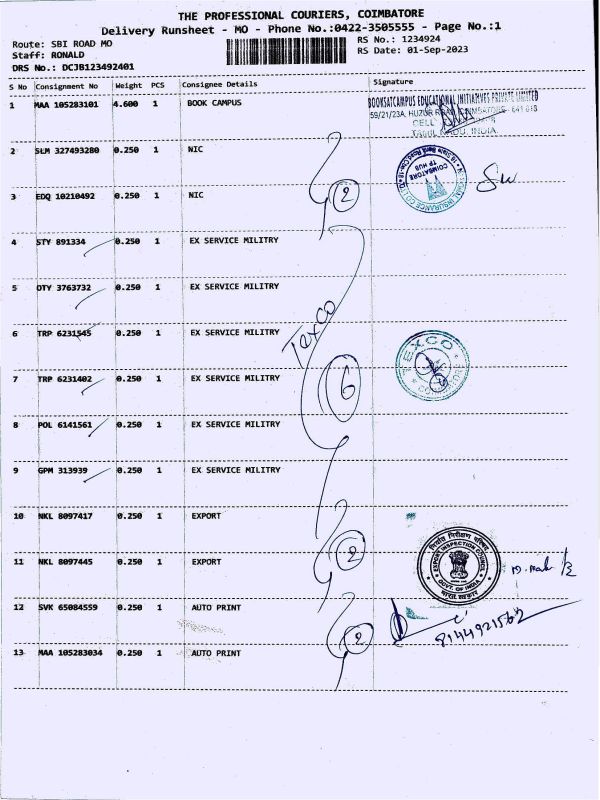 THE PROFESSIONAL COURIERS, COIMBATORE
Delivery Runsheet - MO - Phone No.:0422-3505555 - Page No.:1
Route: SBI ROAD MO RS No.: 1234924
Staff: RONALD RS Date: 01-Sep-2023
DRS No.: DCJB123492401
S No Consignment No Weight PCS Consignee Details Signature
1 MAA 105283101 4.600 1 BOOK CAMPUS
BOOKSATCAMPUS EDUCATIONAL INITIATIVES PRIVATE LIMITED
59/21/23A, HUZUR ROAD, COIMBATORE - 641 018
CELL
TAMIL NADU, INDIA
2 SLM 327493280 0.250 1 NIC
COIMBATORE
TP HUB
3 EDQ 10210492 0.250 1 NIC 2
4 STY 891334 0.250 1 EX SERVICE MILITRY
5 OTY 3763732 0.250 1 EX SERVICE MILITRY
Texco
6 TRP 6231545 0.250 1 EX SERVICE MILITRY
TEXCO
7 TRP 6231402 0.250 1 EX SERVICE MILITRY 6
8 POL 6141561 0.250 1 EX SERVICE MILITRY
9 GPM 313939 0.250 1 EX SERVICE MILITRY
10 NKL 8097417 0.250 1 EXPORT
निर्यात निरीक्षण परिषद
EXPORT INSPECTION COUNCIL
GOVT. OF INDIA
भारत सरकार
11 NKL 8097445 0.250 1 EXPORT 2
12 SVK 65084559 0.250 1 AUTO PRINT
8144921562
13 MAA 105283034 0.250 1 AUTO PRINT 2